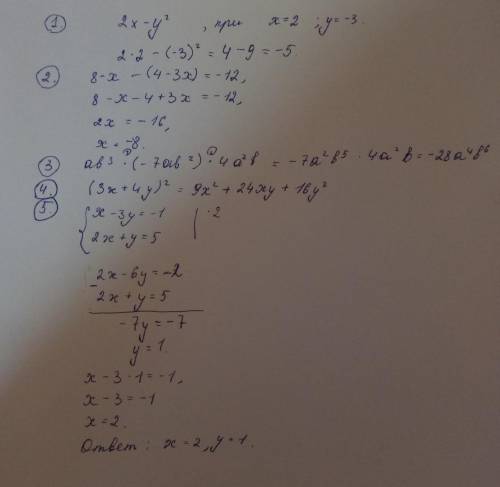 ① 2x - y² , при x=2 ; y=-3.
2·2 - (-3)² = 4 - 9 = -5.
② 8-x - (4-3x) = -12,
8 - x - 4 + 3x = -12,
2x = -16,
x = -8.
③ ab³ · (-7ab²) · 4a²b = -7a²b⁵ · 4a²b = -28a⁴b⁶
④. (3x+4y)² = 9x² + 24xy + 16y²
⑤. { x-3y=-1 | ·2
2x+y=5
2x-6y=-2
- 2x+y=5
-7y=-7
y=1.
x-3·1=-1,
x-3=-1
x=2.
Ответ: x=2, y=1.